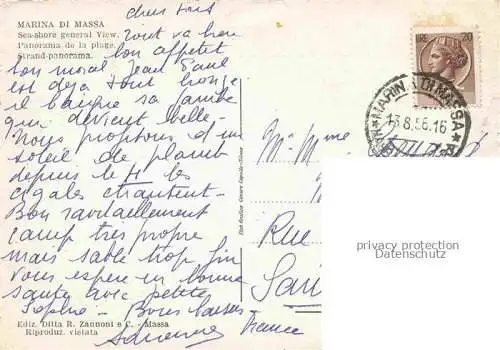 MARINA DI MASSA
Sea-shore general View.
Panorama de la plage.
Strand-panorama.
chers tous
Tout va bien
bon appetit
bon moral Jean Paul
est deja tout bronzé
il baigne sa jambe
qui devient belle
Nous profitons d'un
soleil de plomb
depuis le 11 les
cigales chantent -
Bon ravitaillement
camp très propre
mais sable trop fin
Vous espère en bonne
santé avec petite
Sophie - Bons baisers
Ediz. Ditta R. Zannoni e C. - Massa
Riproduz. vietata
20
MARINA DI MASSA
13.8.56.16
Mme
Rue
France
privacy protection
Datenschutz